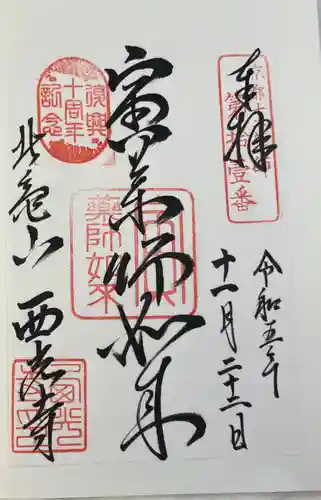 奉拝
第拾壹番
令和五年
十一月二十二日
寅薬師如来
薬師如来
復興
十周年
記念
北亀山 西光寺